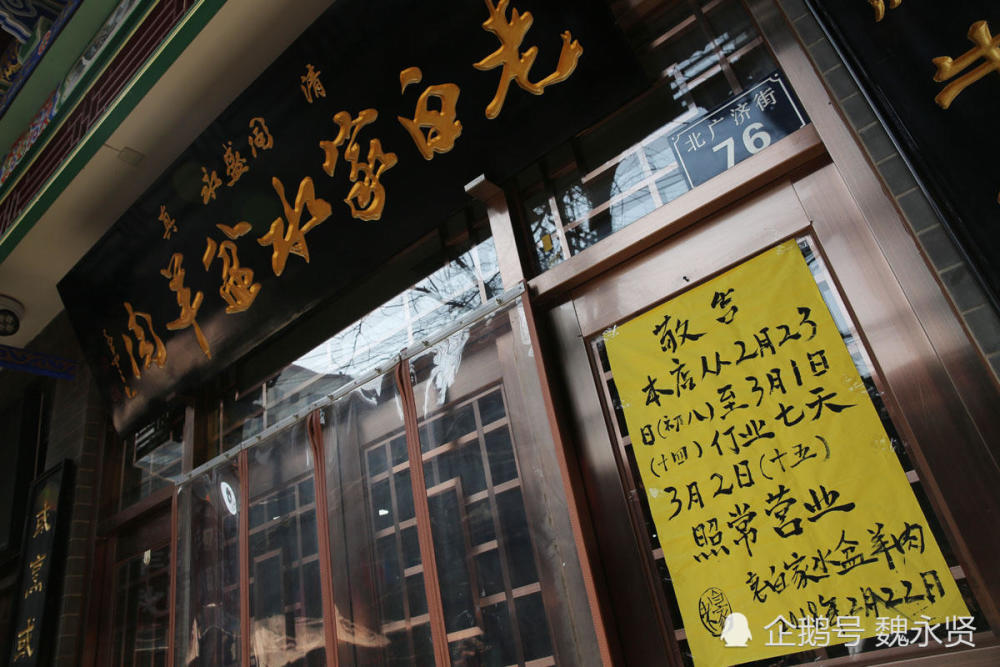 清真
老白家水盆羊肉
北广济街
76
敬告
本店从2月23
日(初八)至3月1日
(十四)仃业七天
3月2日(十五)
照常营业
老白家水盆羊肉
2018年2月22日
企鹅号 魏永贤